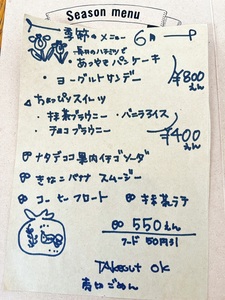 Season menu
季節のメニュー 6月
あつあつパンケーキ
・ヨーグルトサンデー
¥800えん
ちょっぴりスイーツ
・抹茶ブラウニー ・バニラアイス
・チョコブラウニー
¥400えん
ナタデココ果肉イチゴソーダ
きなこバナナ スムージー
コーヒーフロート 抹茶ラテ
550えん
フード50円引
TAKEOUT OK